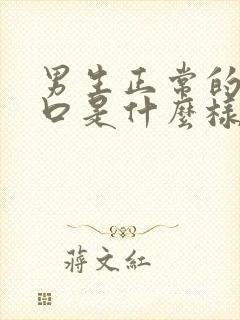 男生正常的
口是什麼樣
蔣文紅